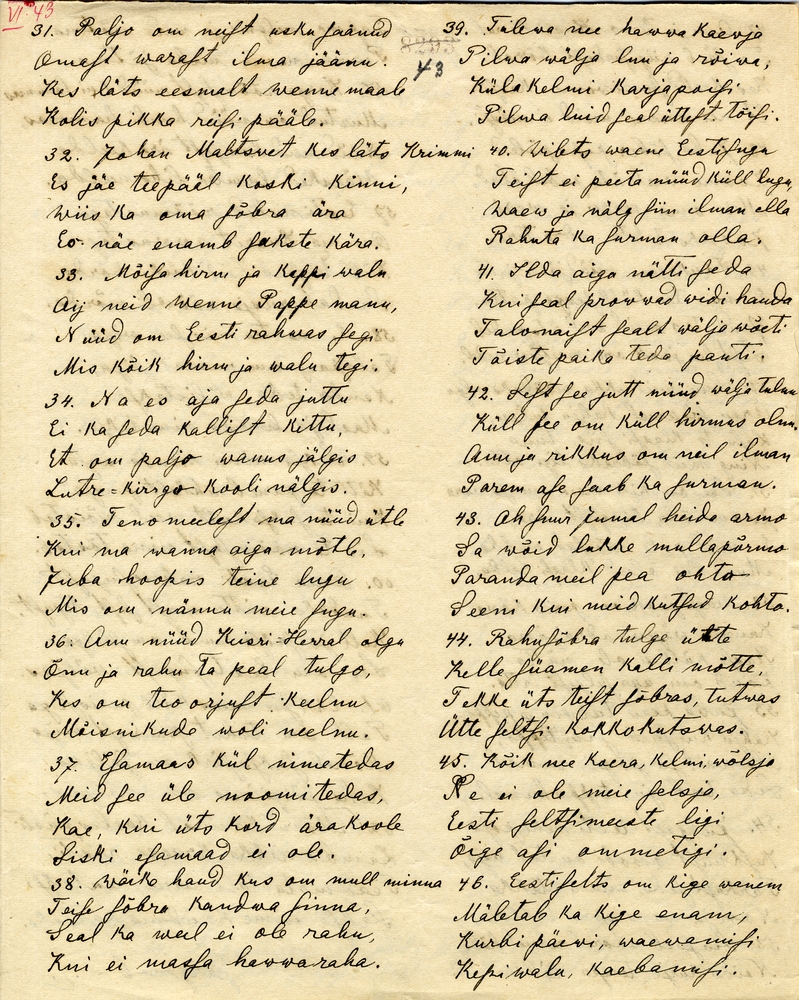 VI 43
43
31. Paljo om neist usku saanud
Omast warast ilma jäänu.
Kes läts eesmalt wenne maale
Kolis pikka reisi pääle.
32. Johan Maltsvet kes läts Krimmi
Es jäe teepääl koski kinni,
Wiis ka oma sõbra ära
Es näe enamb sakste kära.
33. Mõisa hirm ja keppi walu
Aij neid wenne Pappe manu,
Nüüd om Eesti rahwas segi
Mis kõik hirm ja walu tegi.
34. Na es aja seda juttu
Ei ka seda kallist kittu,
Et om paljo wanus jälgis
Lutre-kirrgo kooli nälgis.
35. Teno meelest ma nüüd ütle
Kui ma wanna aiga mõtle,
Juba hoopis teine lugu
Mis om nännu meie sugu.
36. Annu nüüd Keisri-Herral olgu
Õnu ja rahu Ta peal tulgo,
Kes om teoorjust keelnu
Mõisnikude woli neelnu.
37. Esamaas kül nimetedas
Meid see üle noomitedas,
Kae, kui üts kord ära koole
Siski esamaad ei ole.
38. Wäike haud kus om mull minna
Teise sõbra kandwa sinna,
Seal ka weel ei ole rahu,
Kui ei massa hawwaraha.
39. Tulewa nee hawwa kaevja
Pilwa wälja luu ja rõiwa,
Küla kelmi karjapoisi
Pilwa luid seal üttest tõisi.
40. Wilets waene Eestisugu
Teist ei peeta nüüd küll lugu,
Waew ja nälg siin ilman ella
Rahuta ka surman olla.
41. Ilda aigu nätti seda
Kui seal prowwad widi hauda
Talonaist sealt wälja wõeti
Tõiste paika teda panti.
42. Sest see jutt nüüd wälja tulnu
Küll see om küll hirmus olnu.
Annu ja rikkus om neil ilman
Parem ase saab ka surman.
43. Ah suur Jumal heida armo
Sa wõid lukke mullapõrmo
Paranda meil pea ohto
Seeni kui meid kutsud kohto.
44. Rahusõbra tulge ütte
Kelle süamen kalli mõtte,
Tekke üts teist sõbras, tutwas
Ütte seltsi kokkokutswas.
45. Kõik nee koera, kelmi, wõlsja
Ne ei ole meie selsja,
Eesti seltsimeeste ligi
Õige asi ommetigi.
46. Eestiselts om kige wanem
Mäletab ka kige enam,
Kurbi päewi, waewamisi
Kepiwalu, kaebamisi.